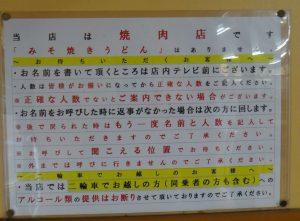 当店は焼肉店です
「みそ焼きうどん」はありません。
～お待ちいただくお客様へ～
・お名前を書いて頂くところは店内テレビ前にございます。
・人数は皆様がお揃いになってから正確な人数をご記入ください。
※正確な人数でないとご案内できない場合がございます。
・お名前をお呼びした時に返事がなかった場合は次の方に回します。
今後で戻られた時はもう一度名前と人数を記入して
お待ちいただきますのでご了承ください。
※お呼びして聞こえる位置でお待ちください。
外までは呼びに行きませんのでご了承ください。
～二輪車でお越しのお客様へ～
・当店では二輪車でお越しの方（同乗者の方も含む）への
アルコール類の提供はお断りさせて頂いておりますのでご了承ください。